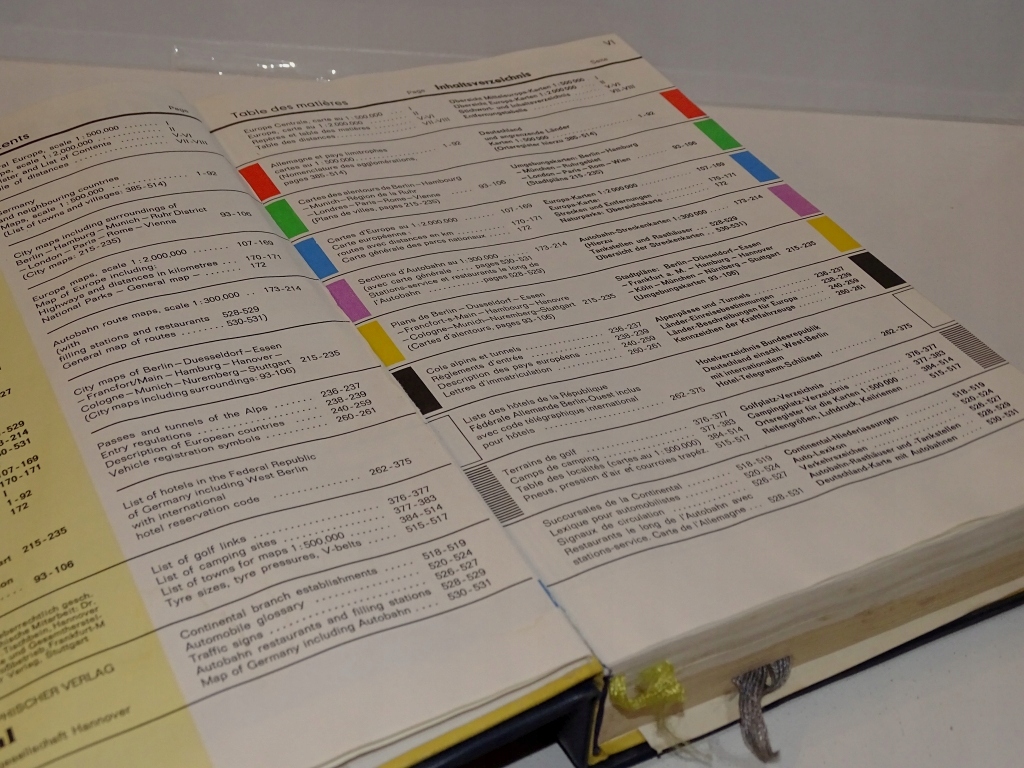 ents
Page
al Europe, scale 1:500,000 I
pe, scale 1:2,000,000 II
ster and List of Contents V-VI
le of distances VII-VIII
ermany
and neighbouring countries
Maps, scale 1:500,000 1-92
(List of towns and villages: 385-514)
City maps including surroundings of
Berlin – Hamburg – Munich – Ruhr District
– London – Paris – Rome – Vienna 93-106
(City maps: 215-235)
Europe maps, scale 1:2,000,000
Map of Europe including: 107-169
Highways and distances in kilometres 170-171
National Parks – General map 172
Autobahn route maps, scale 1:300,000 173-214
(with
filling stations and restaurants 528-529
General map of routes 530-531)
City maps of Berlin – Duesseldorf – Essen
– Francfort/Main – Hamburg – Hanover –
Cologne – Munich – Nuremberg – Stuttgart 215-235
(City maps including surroundings: 93-106)
Passes and tunnels of the Alps 236-237
Entry regulations 238-239
Description of European countries 240-259
Vehicle registration symbols 260-261
List of hotels in the Federal Republic
of Germany including West Berlin
with international 262-375
hotel reservation code
List of golf links 376-377
List of camping sites 377-383
List of towns for maps 1:500,000 384-514
Tyre sizes, tyre pressures, V-belts 515-517
Continental branch establishments 518-519
Automobile glossary 520-524
Traffic signs 526-527
Autobahn restaurants and filling stations 528-529
Map of Germany including Autobahn 530-531
27
-529
3-214
0-531
07-169
170-171
I
1-92
172
art 215-235
on 93-106
eberrechtlich gesch.
HISCHER VERLAG
gesellschaft Hannover
al
VI
Table des matières Page
Europe Centrale, carte au 1:500.000 I
Europe, carte au 1:2.000.000 II
Repères et table des matières V-VI
Table des distances VII-VIII
Allemagne et pays limitrophes
cartes 1:500.000, 1-92
(Nomenclature des agglomérations,
pages 385-514)
Cartes des alentours de Berlin – Hambourg
– Munich – Région de la Ruhr
– Londres – Paris – Rome – Vienne 93-106
(Plans de villes, pages 215-235)
Cartes d'Europe au 1:2.000.000 107-169
Carte européenne
routes avec distances en km 170-171
Carte générale des parcs nationaux 172
Sections d'Autobahn au 1:300.000 173-214
(avec carte générale pages 530-531
Stations-service et restaurants le long de
l'Autobahn pages 528-529)
Plans de Berlin – Dusseldorf – Essen
– Francfort/Main – Hambourg – Hanovre
– Cologne – Munich – Nuremberg – Stuttgart 215-235
(Cartes d'alentours, pages 93-106)
Cols alpins et tunnels 236-237
Règlements d'entrée 238-239
Description des pays européens 240-259
Lettres d'immatriculation 260-261
Liste des hôtels de la République
Fédérale Allemande Berlin-Ouest inclus
avec code télégraphique international 262-375
pour hôtels
Terrains de golf 376-377
Camps de camping 377-383
Table des localités (cartes au 1:500.000) 384-514
Pneus, pression d'air et courroies trapéz. 515-517
Succursales de la Continental 518-519
Lexique pour automobilistes 520-524
Signaux de circulation 526-527
Restaurants le long de l'Autobahn avec
stations-service. Carte de l'Allemagne 528-531
Inhaltsverzeichnis Seite
Übersicht Mitteleuropa-Karten 1:500 000 I
Übersicht Europa-Karten 1:2 000 000 II
Stichwort- und Inhaltsverzeichnis V-VI
Entfernungstabelle VII-VIII
Deutschland
und angrenzende Länder
Karten 1:500 000 1-92
(Ortsregister hierzu 385-514)
Umgebungskarten: Berlin – Hamburg
– München – Ruhrgebiet
– London – Paris – Rom – Wien 93-106
(Stadtpläne 215-235)
Europa-Karten 1:2 000 000 107-169
Europakarte:
Strecken und Entfernungen 170-171
Nationalparks: Übersichtskarte 172
Autobahn-Streckenkarten 1:300 000 173-214
(Hierzu
Tankstellen und Rasthäuser 528-529
Übersicht der Streckenkarten 530-531)
Stadtpläne: Berlin – Düsseldorf – Essen
– Frankfurt a. M. – Hamburg – Hannover
– Köln – München – Nürnberg – Stuttgart 215-235
(Umgebungskarten 93-106)
Alpenpässe und -Tunnels 236-237
Länder-Einreisebestimmungen 238-239
Länder-Beschreibungen Europa 240-259
Kennzeichen der Kraftfahrzeuge 260-261
Hotelverzeichnis Bundesrepublik
Deutschland einschl. West-Berlin
mit internationalem 262-375
Hotel-Telegramm-Schlüssel
Golfplatz-Verzeichnis 376-377
Campingplatz-Verzeichnis 377-383
Ortsregister für die Karten 1:500 000 384-514
Reifengrößen, Luftdruck, Keilriemen 515-517
Continental-Niederlassungen 518-519
Auto-Lexikon 520-524
Verkehrszeichen 526-527
Autobahn-Rasthäuser und -Tankstellen 528-529
Deutschland-Karte mit Autobahnen 530-531